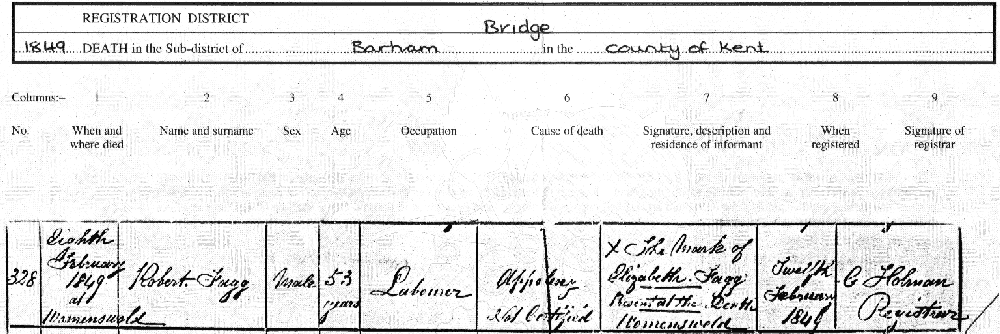 REGISTRATION DISTRICT Bridge
1849 DEATH in the Sub-district of Barham in the County of Kent
Columns:- 1 2 3 4 5 6 7 8 9
No. When and where died Name and surname Sex Age Occupation Cause of death Signature, description and residence of informant When registered Signature of registrar
328
Eighth
February
1849
at
Womenswold
Robert Fagg
Male
53
years
Labourer
Apoplexy
Not Certified
X The Mark of
Elizabeth Fagg
Present at the Death
Womenswold
Twelfth
February
1849
C Holman
Registrar